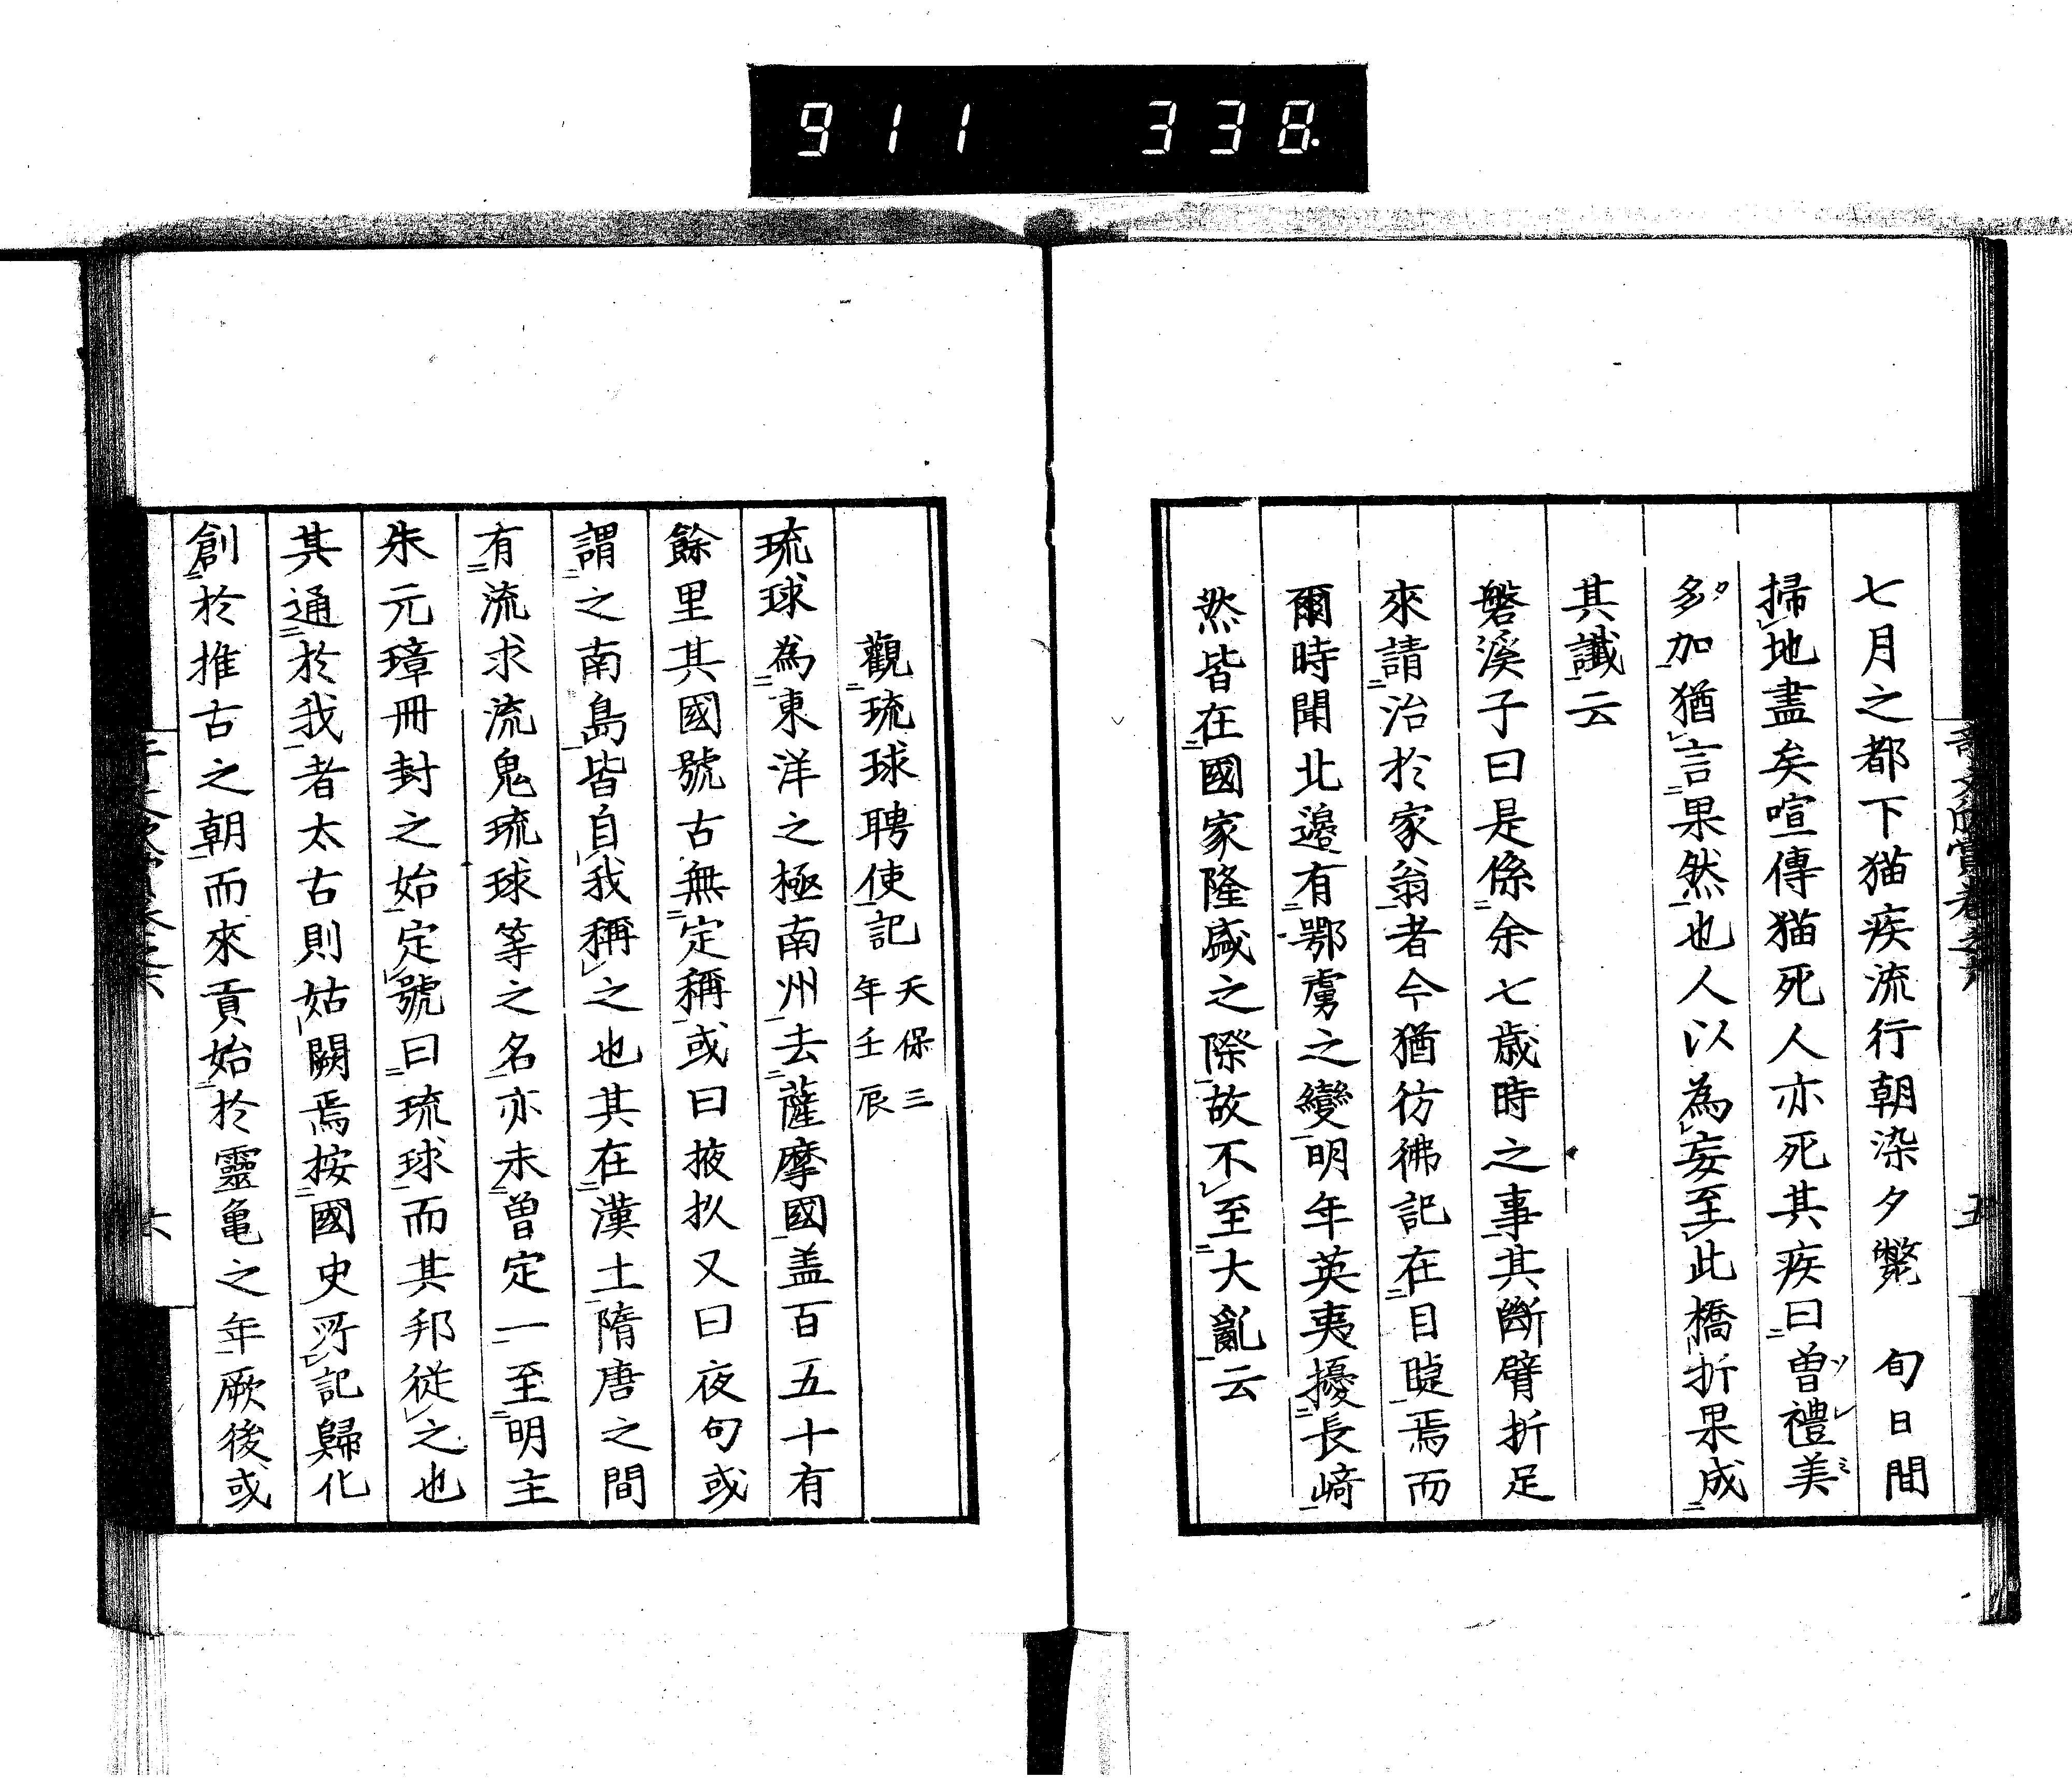 911 338.
七月之都下猫疾流行朝染夕斃 旬日間
掃地盡矣喧傳猫死人亦死其疾曰曽禮美
多加猶言果然也人以為妄至此橋折果成
其讖云
磐溪子曰是係余七歳時之事其斷臂折足
來請治於家翁者今猶彷彿記在目睫焉而
爾時聞北邊有鄂虜之變明年英夷擾長﨑
然皆在國家隆盛之際故不至大亂云
五
觀琉球聘使記 天保三年壬辰
琉球為東洋之極南州去薩摩國盖百五十有
餘里其國號古無定稱或曰掖玖又曰夜句或
謂之南島皆自我稱之也其在漢土隋唐之間
有流求流鬼琉球等之名亦未曽定一至明主
朱元璋冊封之始定號曰琉球而其邦従之也
其通於我者太古則姑闕焉按國史所記歸化
創於推古之朝而來貢始於靈亀之年厥後或
六